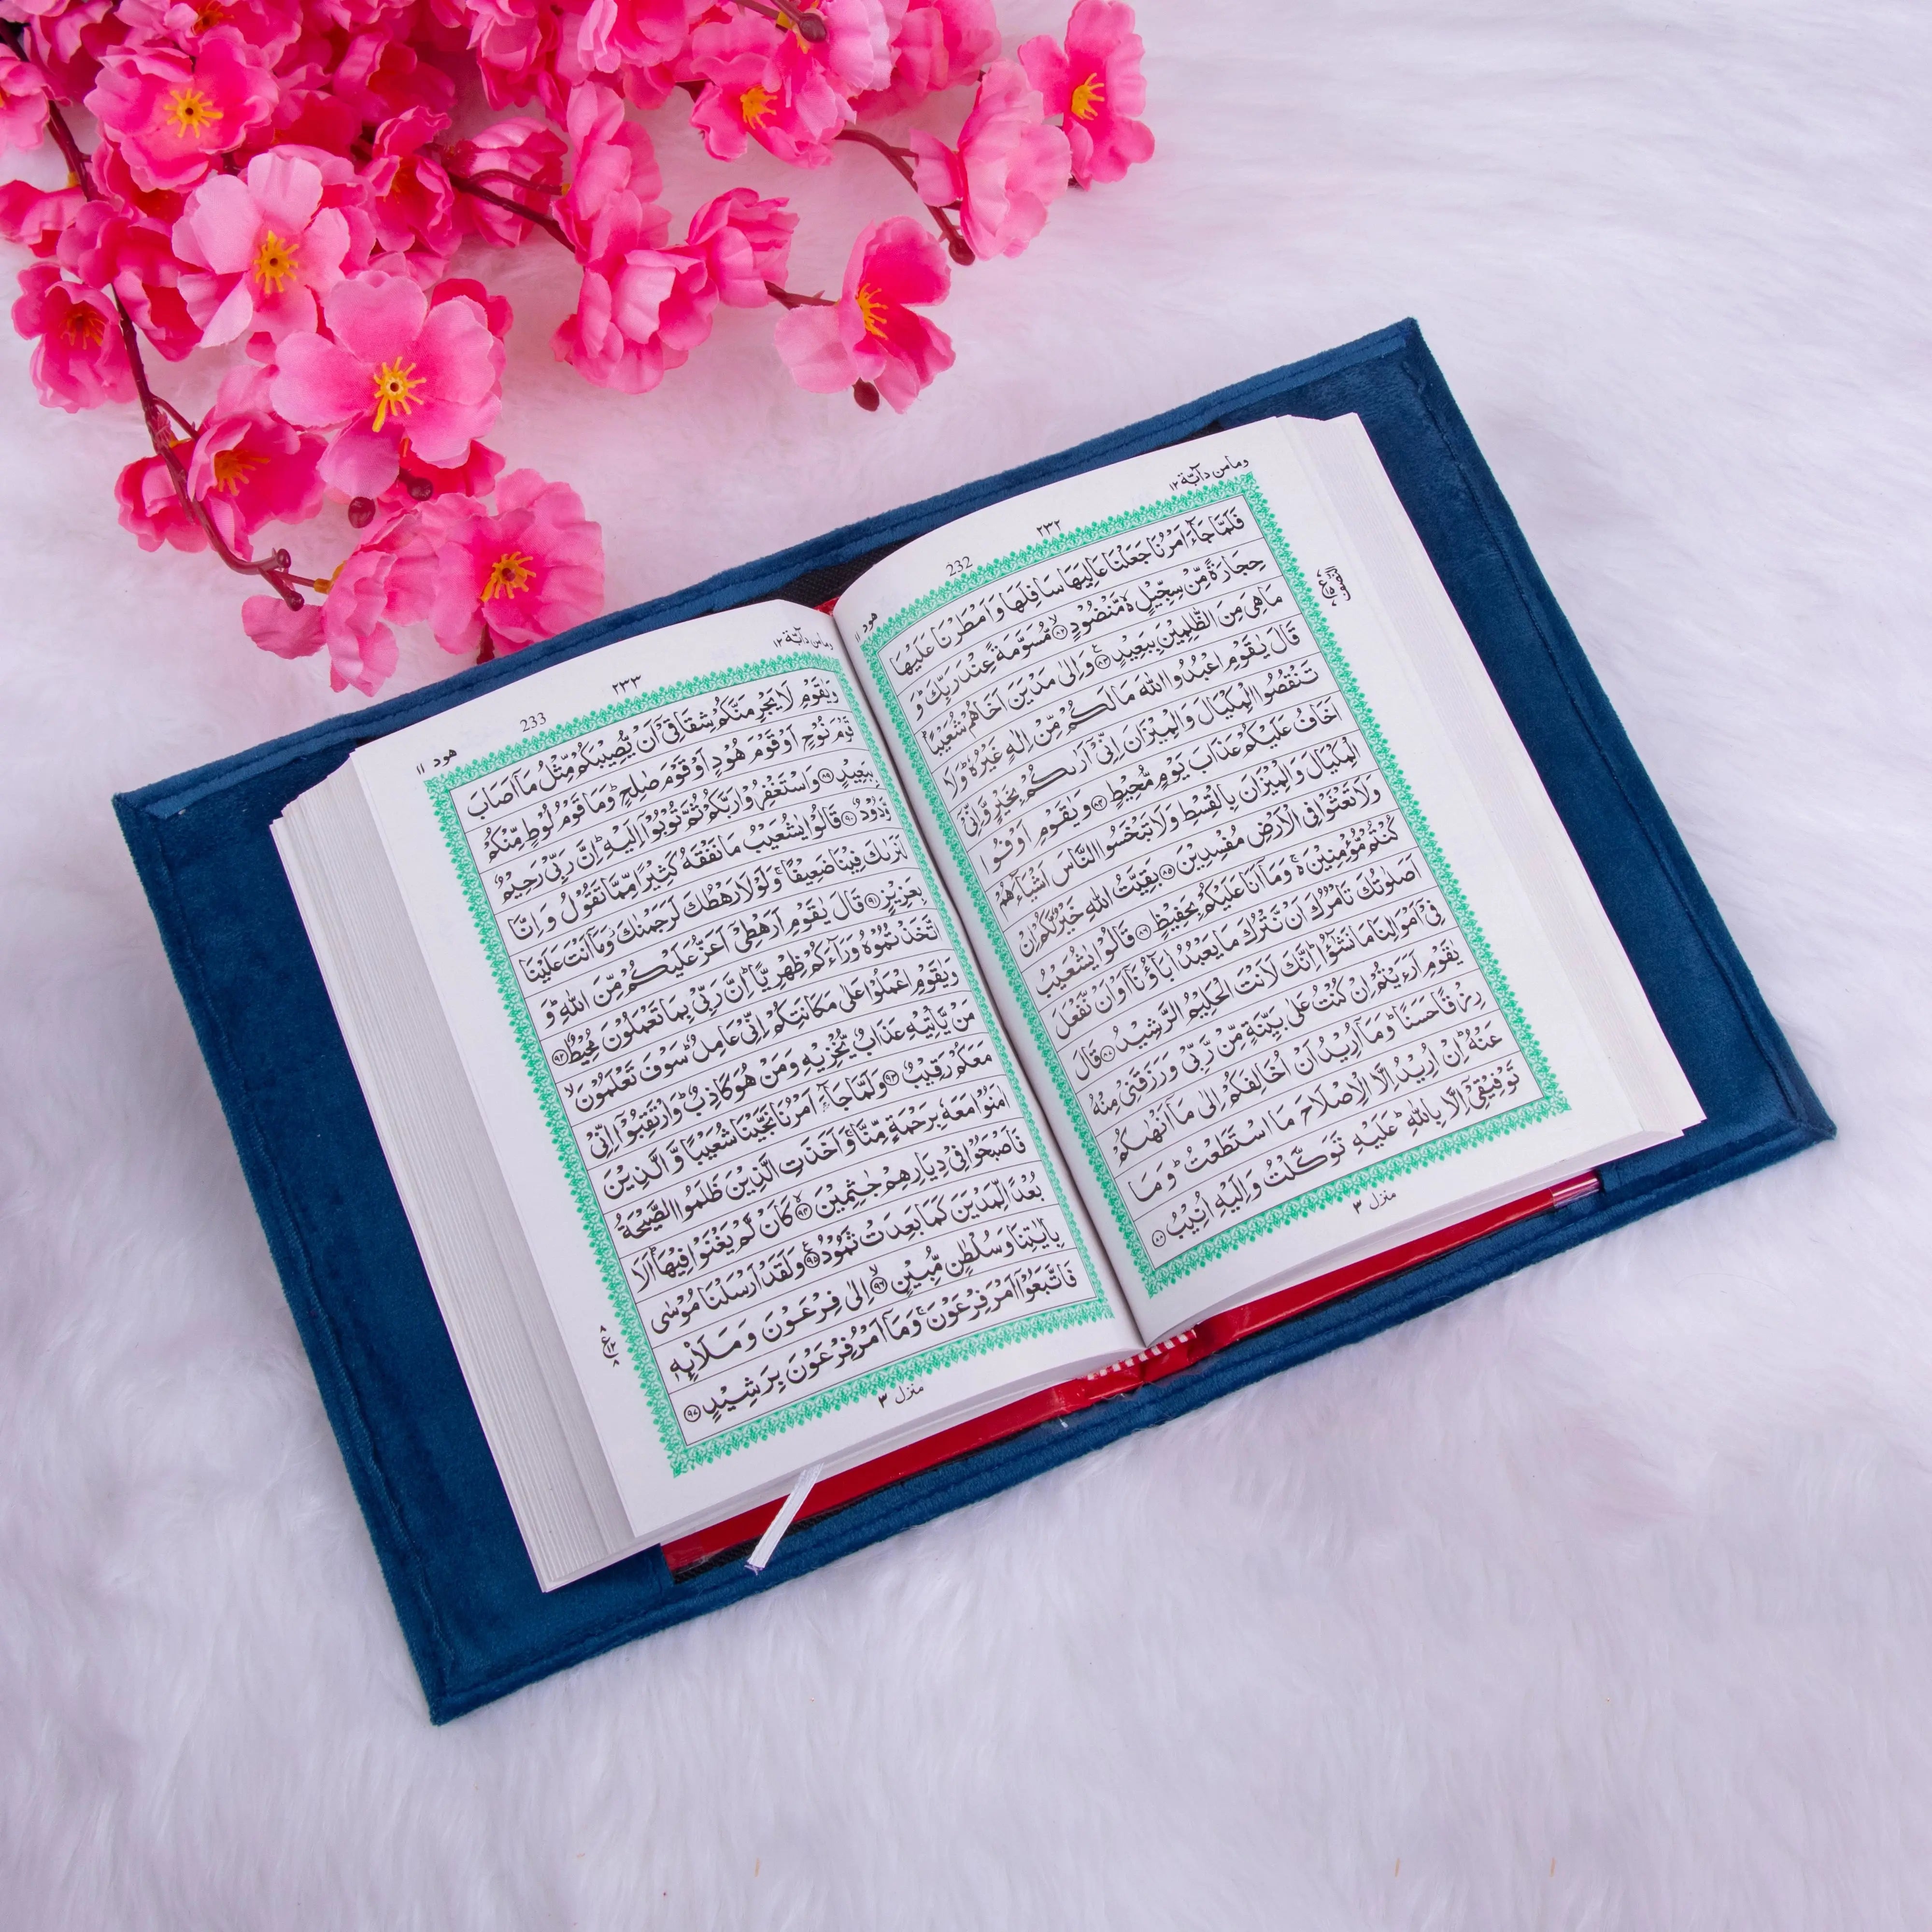 ومامن دآبة ١٢
٢٣٢
232
هود ١١
فَلَمَّا جَآءَ اَمْرُنَا جَعَلْنَا عَالِيَهَا سَافِلَهَا وَاَمْطَرْنَا عَلَيْهَا
حِجَارَةً مِّنْ سِجِّيْلٍ ۙ مَّنْضُوْدٍ ﴿٨٢﴾ مُّسَوَّمَةً عِنْدَ رَبِّكَ ؕ وَ
مَا هِيَ مِنَ الظّٰلِمِيْنَ بِبَعِيْدٍ ﴿٨٣﴾ وَاِلٰى مَدْيَنَ اَخَاهُمْ شُعَيْبًا ؕ
قَالَ يٰقَوْمِ اعْبُدُوا اللّٰهَ مَا لَكُمْ مِّنْ اِلٰهٍ غَيْرُهٗ ؕ وَلَا
تَنْقُصُوا الْمِكْيَالَ وَالْمِيْزَانَ اِنِّيْٓ اَرٰىكُمْ بِخَيْرٍ وَّاِنِّيْٓ
اَخَافُ عَلَيْكُمْ عَذَابَ يَوْمٍ مُّحِيْطٍ ﴿٨٤﴾ وَيٰقَوْمِ اَوْفُوا
الْمِكْيَالَ وَالْمِيْزَانَ بِالْقِسْطِ وَلَا تَبْخَسُوا النَّاسَ اَشْيَآءَهُمْ
وَلَا تَعْثَوْا فِى الْاَرْضِ مُفْسِدِيْنَ ﴿٨٥﴾ بَقِيَّتُ اللّٰهِ خَيْرٌ لَّكُمْ اِنْ
كُنْتُمْ مُّؤْمِنِيْنَ ۚ وَمَآ اَنَا عَلَيْكُمْ بِحَفِيْظٍ ﴿٨٦﴾ قَالُوْا يٰشُعَيْبُ
اَصَلٰوتُكَ تَاْمُرُكَ اَنْ نَّتْرُكَ مَا يَعْبُدُ اٰبَآؤُنَآ اَوْ اَنْ نَّفْعَلَ
فِيْٓ اَمْوَالِنَا مَا نَشٰٓؤُا ؕ اِنَّكَ لَاَنْتَ الْحَلِيْمُ الرَّشِيْدُ ﴿٨٧﴾ قَالَ
يٰقَوْمِ اَرَءَيْتُمْ اِنْ كُنْتُ عَلٰى بَيِّنَةٍ مِّنْ رَّبِّيْ وَرَزَقَنِيْ مِنْهُ
رِزْقًا حَسَنًا ؕ وَمَآ اُرِيْدُ اَنْ اُخَالِفَكُمْ اِلٰى مَآ اَنْهٰىكُمْ
عَنْهُ ؕ اِنْ اُرِيْدُ اِلَّا الْاِصْلَاحَ مَا اسْتَطَعْتُ ؕ وَمَا
تَوْفِيْقِيْٓ اِلَّا بِاللّٰهِ ؕ عَلَيْهِ تَوَكَّلْتُ وَاِلَيْهِ اُنِيْبُ ﴿٨٨﴾
منزل ٣
ومامن دآبة ١٢
٢٣٣
233
هود ١١
وَيٰقَوْمِ لَا يَجْرِمَنَّكُمْ شِقَاقِيْٓ اَنْ يُّصِيْبَكُمْ مِّثْلُ مَآ اَصَابَ
قَوْمَ نُوْحٍ اَوْ قَوْمَ هُوْدٍ اَوْ قَوْمَ صٰلِحٍ ؕ وَمَا قَوْمُ لُوْطٍ مِّنْكُمْ
بِبَعِيْدٍ ﴿٨٩﴾ وَاسْتَغْفِرُوْا رَبَّكُمْ ثُمَّ تُوْبُوْٓا اِلَيْهِ ؕ اِنَّ رَبِّيْ رَحِيْمٌ
وَّدُوْدٌ ﴿٩٠﴾ قَالُوْا يٰشُعَيْبُ مَا نَفْقَهُ كَثِيْرًا مِّمَّا تَقُوْلُ وَاِنَّا
لَنَرٰىكَ فِيْنَا ضَعِيْفًا ۚ وَلَوْلَا رَهْطُكَ لَرَجَمْنٰكَ ؗ وَمَآ اَنْتَ عَلَيْنَا
بِعَزِيْزٍ ﴿٩١﴾ قَالَ يٰقَوْمِ اَرَهْطِيْٓ اَعَزُّ عَلَيْكُمْ مِّنَ اللّٰهِ ؕ وَ
اتَّخَذْتُمُوْهُ وَرَآءَكُمْ ظِهْرِيًّا ؕ اِنَّ رَبِّيْ بِمَا تَعْمَلُوْنَ مُحِيْطٌ ﴿٩٢﴾
وَيٰقَوْمِ اعْمَلُوْا عَلٰى مَكَانَتِكُمْ اِنِّيْ عَامِلٌ ؕ سَوْفَ تَعْلَمُوْنَ ۙ
مَنْ يَّاْتِيْهِ عَذَابٌ يُّخْزِيْهِ وَمَنْ هُوَ كَاذِبٌ ؕ وَارْتَقِبُوْٓا اِنِّيْ
مَعَكُمْ رَقِيْبٌ ﴿٩٣﴾ وَلَمَّا جَآءَ اَمْرُنَا نَجَّيْنَا شُعَيْبًا وَّالَّذِيْنَ
اٰمَنُوْا مَعَهٗ بِرَحْمَةٍ مِّنَّا ۚ وَاَخَذَتِ الَّذِيْنَ ظَلَمُوا الصَّيْحَةُ
فَاَصْبَحُوْا فِيْ دِيَارِهِمْ جٰثِمِيْنَ ﴿٩٤﴾ كَاَنْ لَّمْ يَغْنَوْا فِيْهَا ؕ اَلَا
بُعْدًا لِّمَدْيَنَ كَمَا بَعِدَتْ ثَمُوْدُ ﴿٩٥﴾ وَلَقَدْ اَرْسَلْنَا مُوْسٰى
بِاٰيٰتِنَا وَسُلْطٰنٍ مُّبِيْنٍ ﴿٩٦﴾ اِلٰى فِرْعَوْنَ وَمَلَا۟ئِهٖ
فَاتَّبَعُوْٓا اَمْرَ فِرْعَوْنَ ۚ وَمَآ اَمْرُ فِرْعَوْنَ بِرَشِيْدٍ ﴿٩٧﴾
منزل ٣